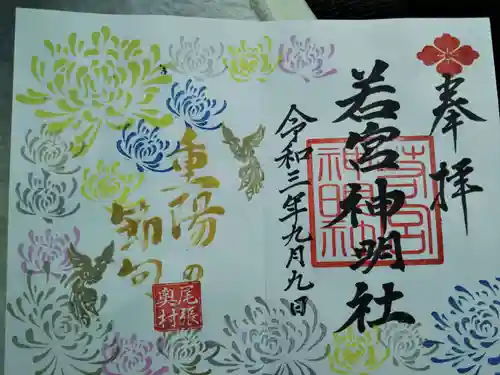 奉拝
若宮神明社
若宮神明社
令和三年九月九日
重陽の
節句
尾張
奥村